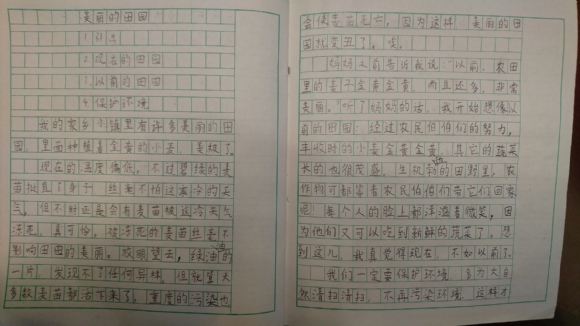 美丽的田园
1.认点
2.现在的田园
3.以前的田园
4.保护环境
我的家乡小镇里有许多美丽的田
园,里面种植着金黄的小麦,美极了。
现在的温度偏低,不过碧绿的麦
苗挺直了身子,丝毫不怕这寒冷的天
气,但不时还是会有麦苗被这冷天气
冻死,真可怜,被冻死的麦苗丝毫不
影响田园的美丽。放眼望去,绿油油的
一片,发现不了任何异样,但就算大
多数麦苗都活下来了,重度的污染也
会使麦苗死亡,因为这样,美丽的田
园就变丑了。唉。
妈妈以前告诉我说:“以前,农田
里的麦子金黄金黄,而且还多,非常
美丽。”听了妈妈的话,我开始想像以
前的田园:经过农民伯伯们的努力,
丰收时的小麦金黄金黄,其它的蔬菜
长的也很茂盛,生机勃勃的田野里,农
作物可都等着农民伯伯们带它们回家
呢,每个人的脸上都洋溢着微笑,因
为他们又可以吃到新鲜的蔬菜了,想
到这儿,我真觉得现在,不如以前了。
我们一定要保护环境,多为大自
然清扫清扫,不再污染环境,这样才